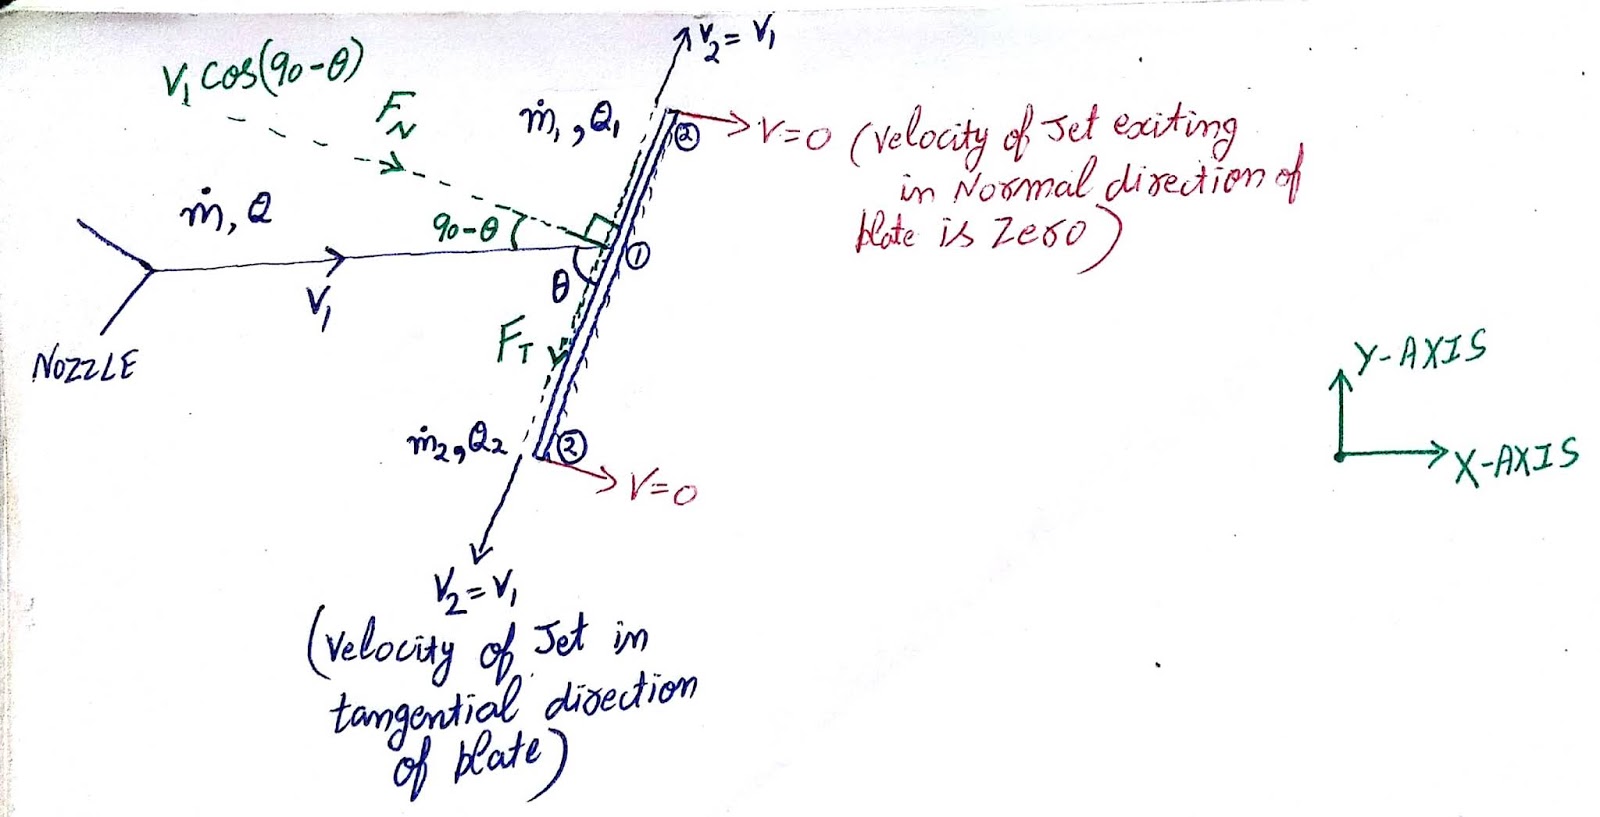 V₂ = V₁
V₁ cos(90-θ)
F_N
ṁ₁, Q₁
②
V=0 (Velocity of Jet exiting
in Normal direction of
plate is Zero)
ṁ, Q
90-θ
①
θ
V₁
F_T
NOZZLE
Y-AXIS
X-AXIS
ṁ₂, Q₂
②
V=0
V₂ = V₁
(Velocity of Jet in
tangential direction
of plate)